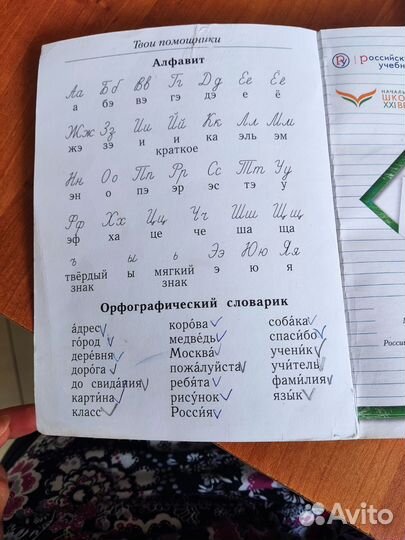 Твои помощники
Алфавит
Аа Бб Вв Гг Дд Ее Ёё
а бэ вэ гэ дэ е ё
Жж Зз Ии Йй Кк Лл Мм
жэ зэ и и краткое ка эль эм
Нн Оо Пп Рр Сс Тт Уу
эн о пэ эр эс тэ у
Фф Хх Цц Чч Шш Щщ
эф ха це че ша ща
ъ ы ь Ээ Юю Яя
твёрдый знак ы мягкий знак э ю я
Орфографический словарик
а́дрес
го́род
дере́вня
доро́га
до свида́ния
карти́на
класс
коро́ва
медве́дь
Москва́
пожа́луйста
ребя́та
рису́нок
Росси́я
соба́ка
спаси́бо
учени́к
учи́тель
фами́лия
язы́к
российски
учебн
НАЧАЛЬ
ШКО
XXI ВЕ
Avito